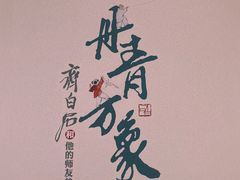 丹青万象
齐白石和他的师友